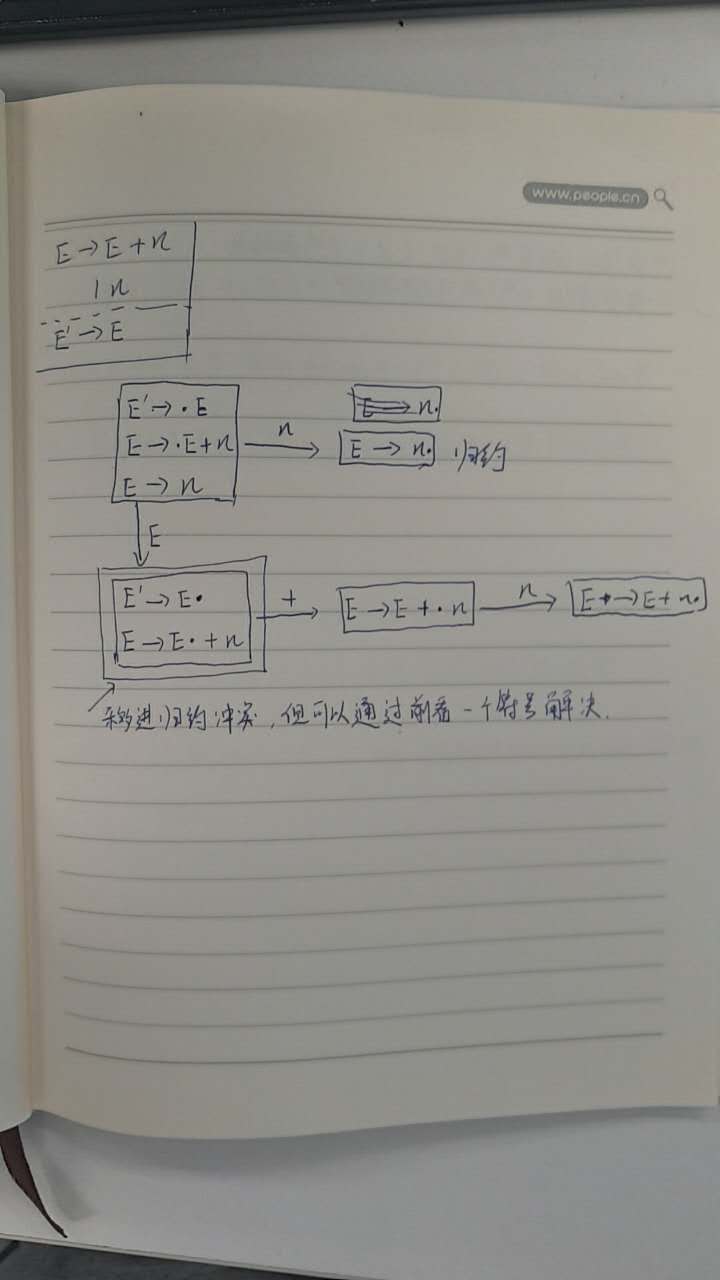 www.people.cn
E → E + n
| n
E' → E
E' → · E
E → · E + n
E → n
n
E → n.
E → n.
归约
E
E' → E ·
E → E · + n
+
E → E + · n
n
E → E + n.
移进归约冲突,但可以通过前看一个符号解决.